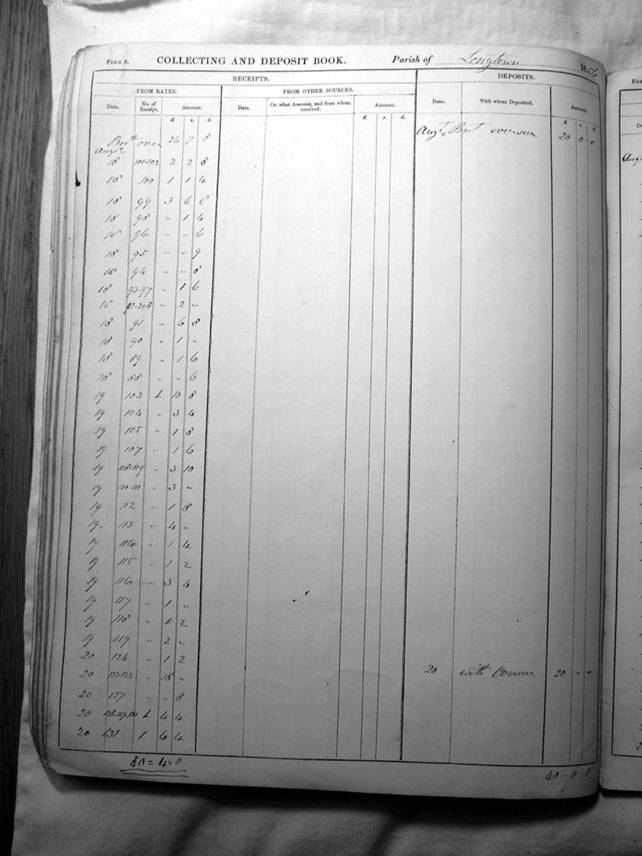 Form 8. COLLECTING AND DEPOSIT BOOK. Parish of Longtown 185
RECEIPTS. DEPOSITS.
FROM RATES. FROM OTHER SOURCES.
Date. No. of Receipt. Amount. Date. On what Account, and from whom received. Amount. Date. With whom Deposited. Amount.
£ s. d. £ s. d. £ s. d.
over 26 7 8 Augt Brt oversees 20 0 0
Augt
18 101-102 2 2 8
18 100 1 1 4
18 99 3 6 8
18 98 " 1 4
18 96 - - 6
18 95 - - 9
18 94 - - 8
18 93-97 " 1 6
18 " 2 -
18 91 - 6 8
18 90 - 1 -
18 89 - 1 6
18 88 - - 6
19 103 10 8
19 104 - 3 4
19 105 - 1 8
19 107 - 1 6
19 108-109 - 3 10
19 110-111 - 3 -
19 112 - 1 8
19 113 - 4 -
19 114 - 1 4
19 115 - 1 2
19 116 - 3 4
19 117 - 1 -
19 118 2
19 119 - 2 -
20 124 - 1 2
20 122-123 - 18 - 20 with 20 - -
20 127 - - 8
20 4 4
20 131 1 6 4
40-0-0